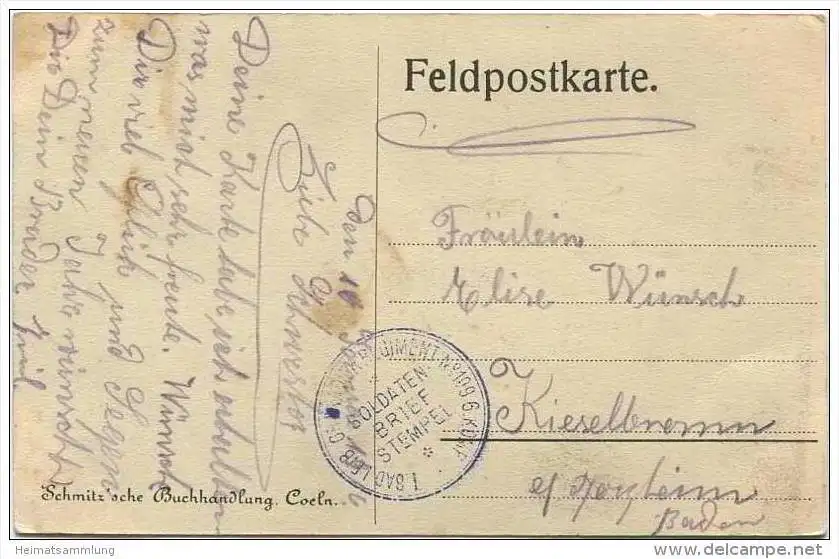 Feldpostkarte.
den 16
Liebe Schwester
Deine Karte habe ich erhalten
was mich sehr freute. Wünsch
Dir viel Glück und Segen
zum neuen Jahr wünscht
Dir Dein Bruder Emil
Fräulein
Elise Wünsch
Kieselbronn
Pforzheim
Baden
1. BAD. LEIB-REGIMENT No 109 6. KOMP.
SOLDATEN-
BRIEF
STEMPEL
Schmitz'sche Buchhandlung. Coeln.
Heimatsammlung
www.delcampe.net